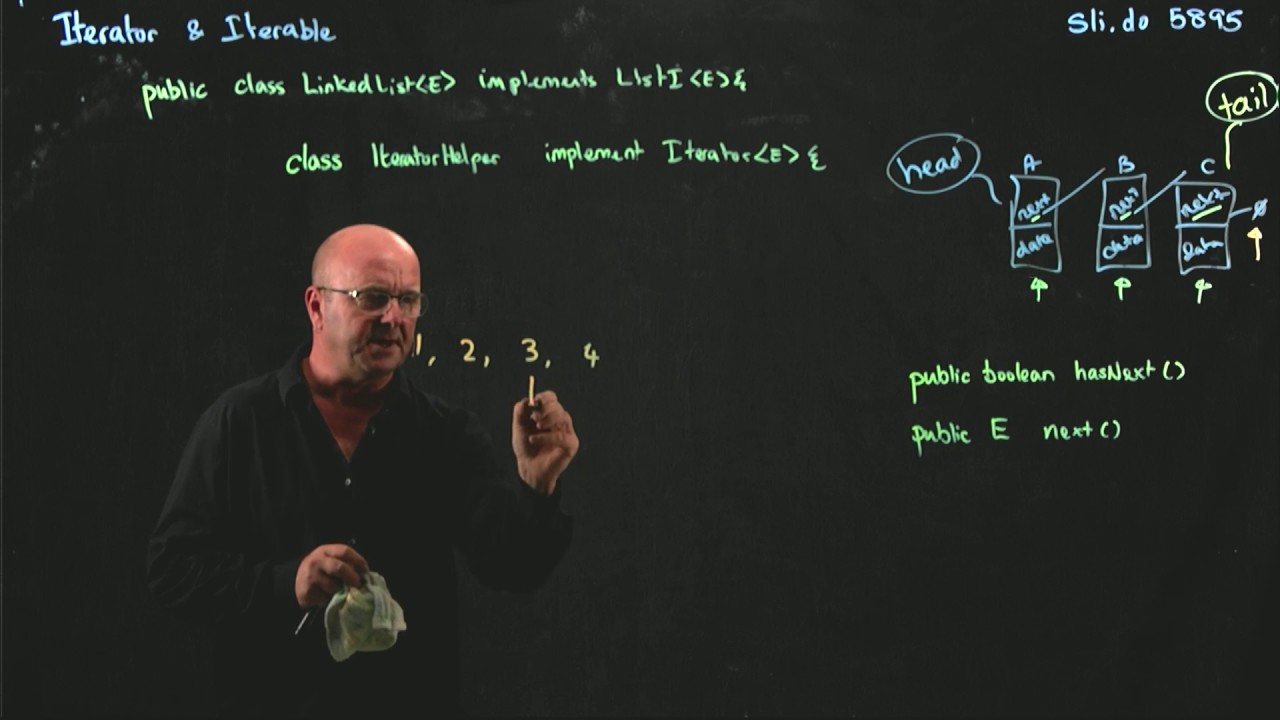 Iterator & Iterable
Sli.do 5895
public class LinkedList<E> implements ListI<E>{
tail
class IteratorHelper implement Iterator<E>{
head
A B C
next next next ∅
data data data
1, 2, 3, 4
public boolean hasNext()
public E next()